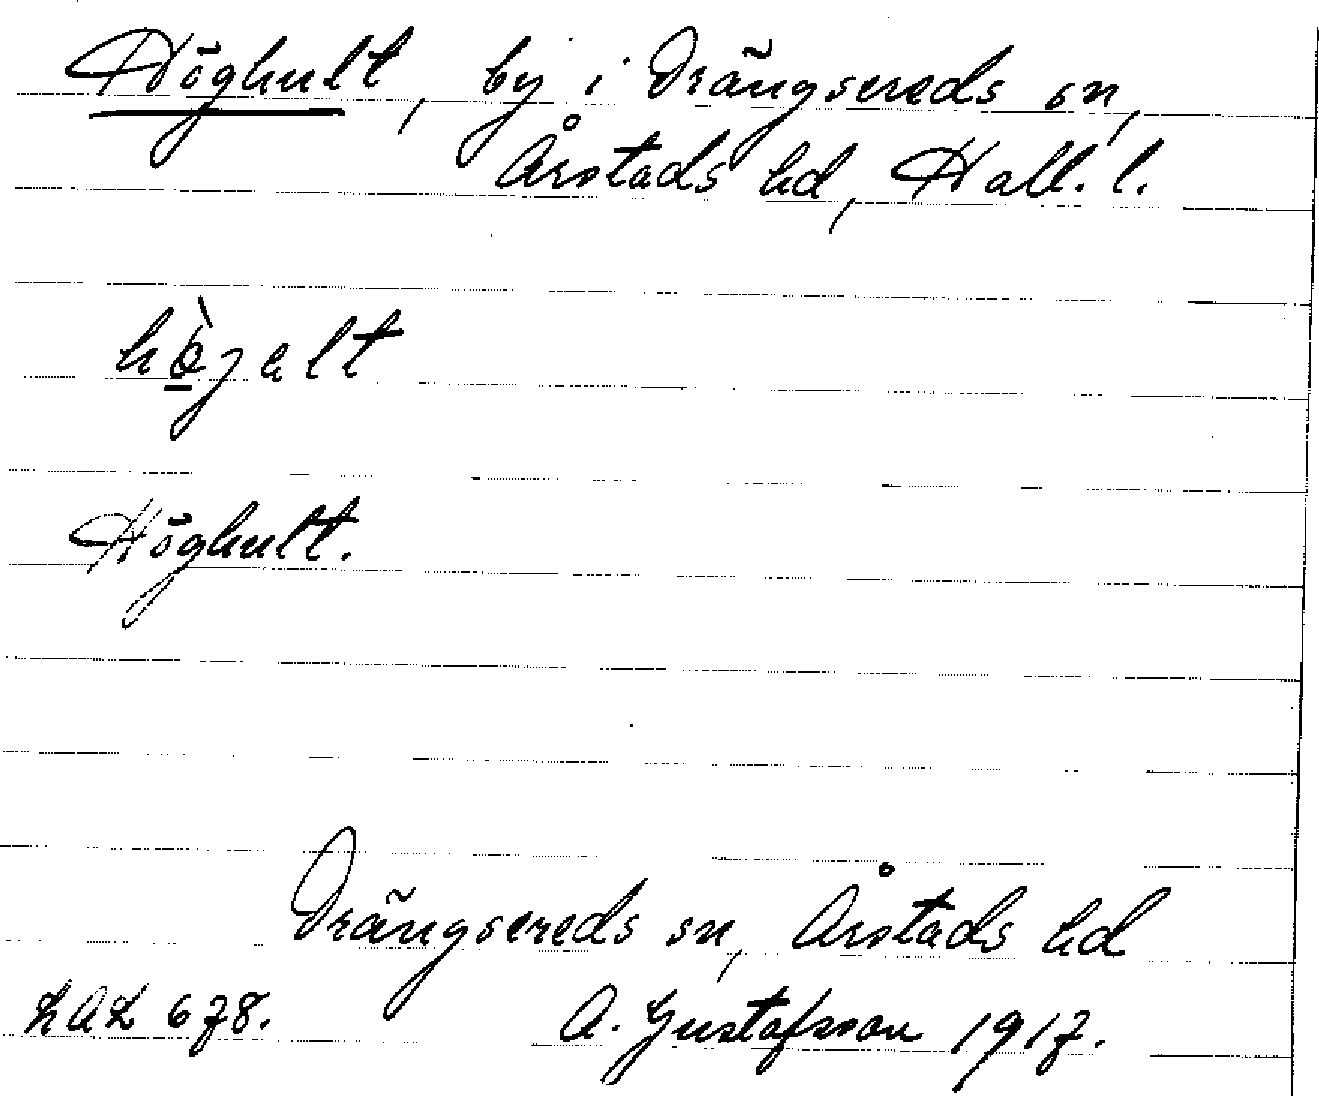 Höghult, by i Drängsereds sn,
Årstads hd, Hall. l.
Höghult.
Drängsereds sn, Årstads hd
LAL 678. A. Gustafsson 1917.